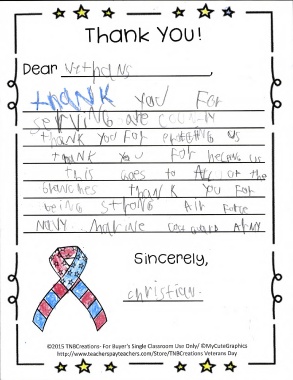 Thank You!
Dear vethens,
thank you For
serving are country
thank you For protecting us
thank you For helping us
this goes to All of the
branches thank you For
being strong Air Force
Navy marine coast guard Army
Sincerely,
christian
©2015 TNBCreations- For Buyer's Single Classroom Use Only/ ©MyCuteGraphics
http://www.teacherspayteachers.com/Store/TNBCreations Veterans Day